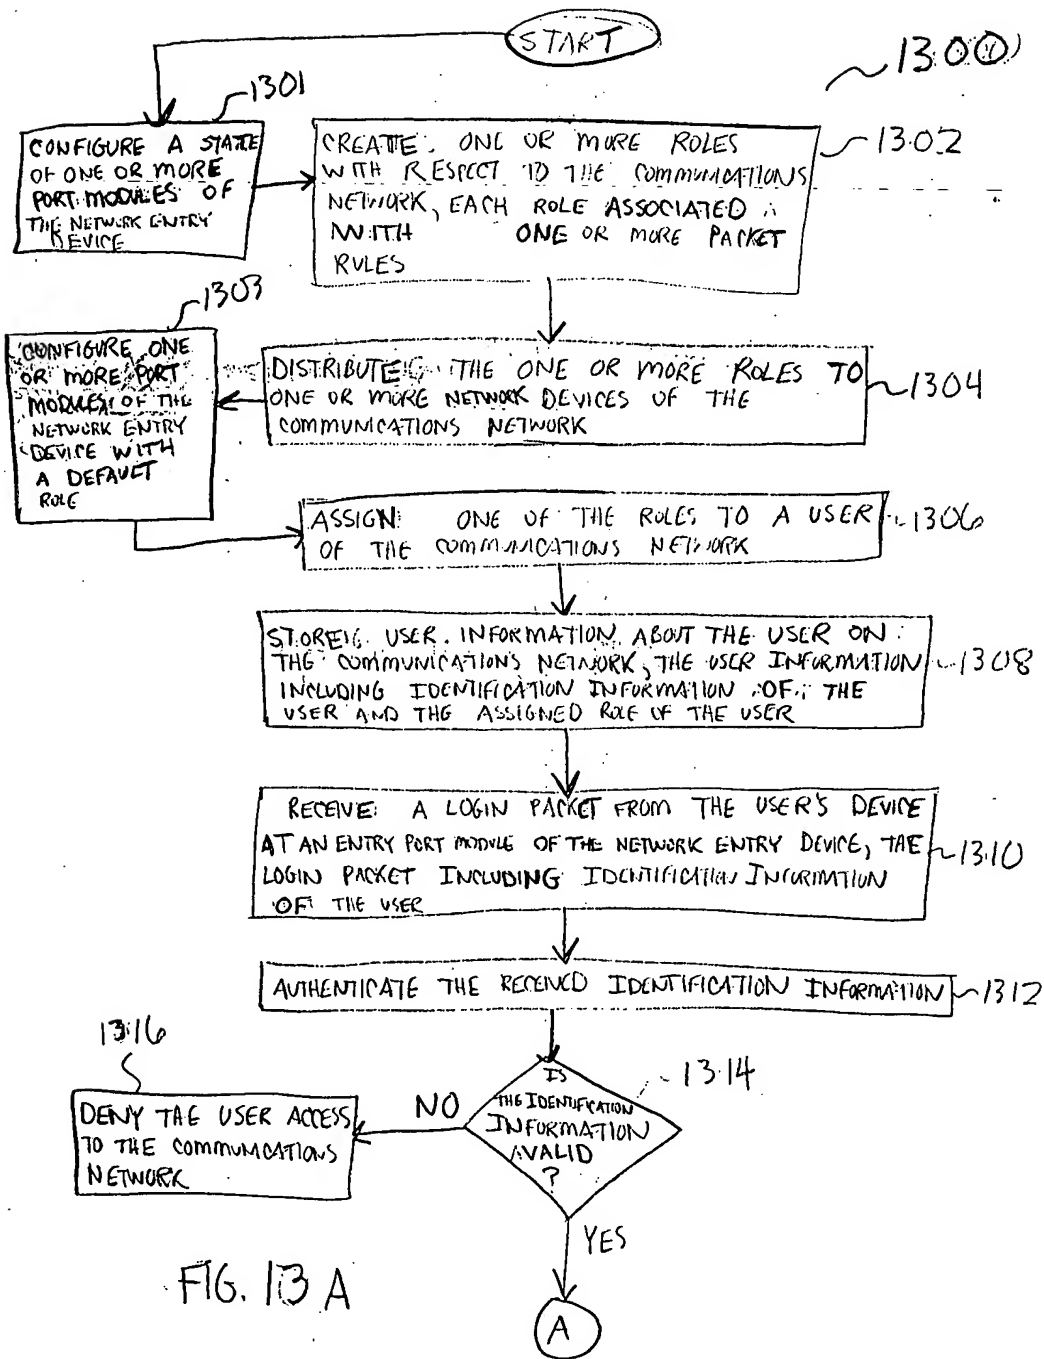 START
1300
1301
CONFIGURE A STATE
OF ONE OR MORE
PORT MODULES OF
THE NETWORK ENTRY
DEVICE
CREATE ONE OR MORE ROLES
WITH RESPECT TO THE COMMUNICATIONS
NETWORK, EACH ROLE ASSOCIATED
WITH ONE OR MORE PACKET
RULES
1302
1303
CONFIGURE ONE
OR MORE PORT
MODULES OF THE
NETWORK ENTRY
DEVICE WITH
A DEFAULT
ROLE
DISTRIBUTE THE ONE OR MORE ROLES TO
ONE OR MORE NETWORK DEVICES OF THE
COMMUNICATIONS NETWORK
1304
ASSIGN ONE OF THE ROLES TO A USER
OF THE COMMUNICATIONS NETWORK
1306
STORE USER INFORMATION ABOUT THE USER ON
THE COMMUNICATIONS NETWORK, THE USER INFORMATION
INCLUDING IDENTIFICATION INFORMATION OF THE
USER AND THE ASSIGNED ROLE OF THE USER
1308
RECEIVE A LOGIN PACKET FROM THE USER'S DEVICE
AT AN ENTRY PORT MODULE OF THE NETWORK ENTRY DEVICE, THE
LOGIN PACKET INCLUDING IDENTIFICATION INFORMATION
OF THE USER
1310
AUTHENTICATE THE RECEIVED IDENTIFICATION INFORMATION
1312
IS
THE IDENTIFICATION
INFORMATION
VALID
?
1314
1316
DENY THE USER ACCESS
TO THE COMMUNICATIONS
NETWORK
NO
YES
A
FIG. 13 A